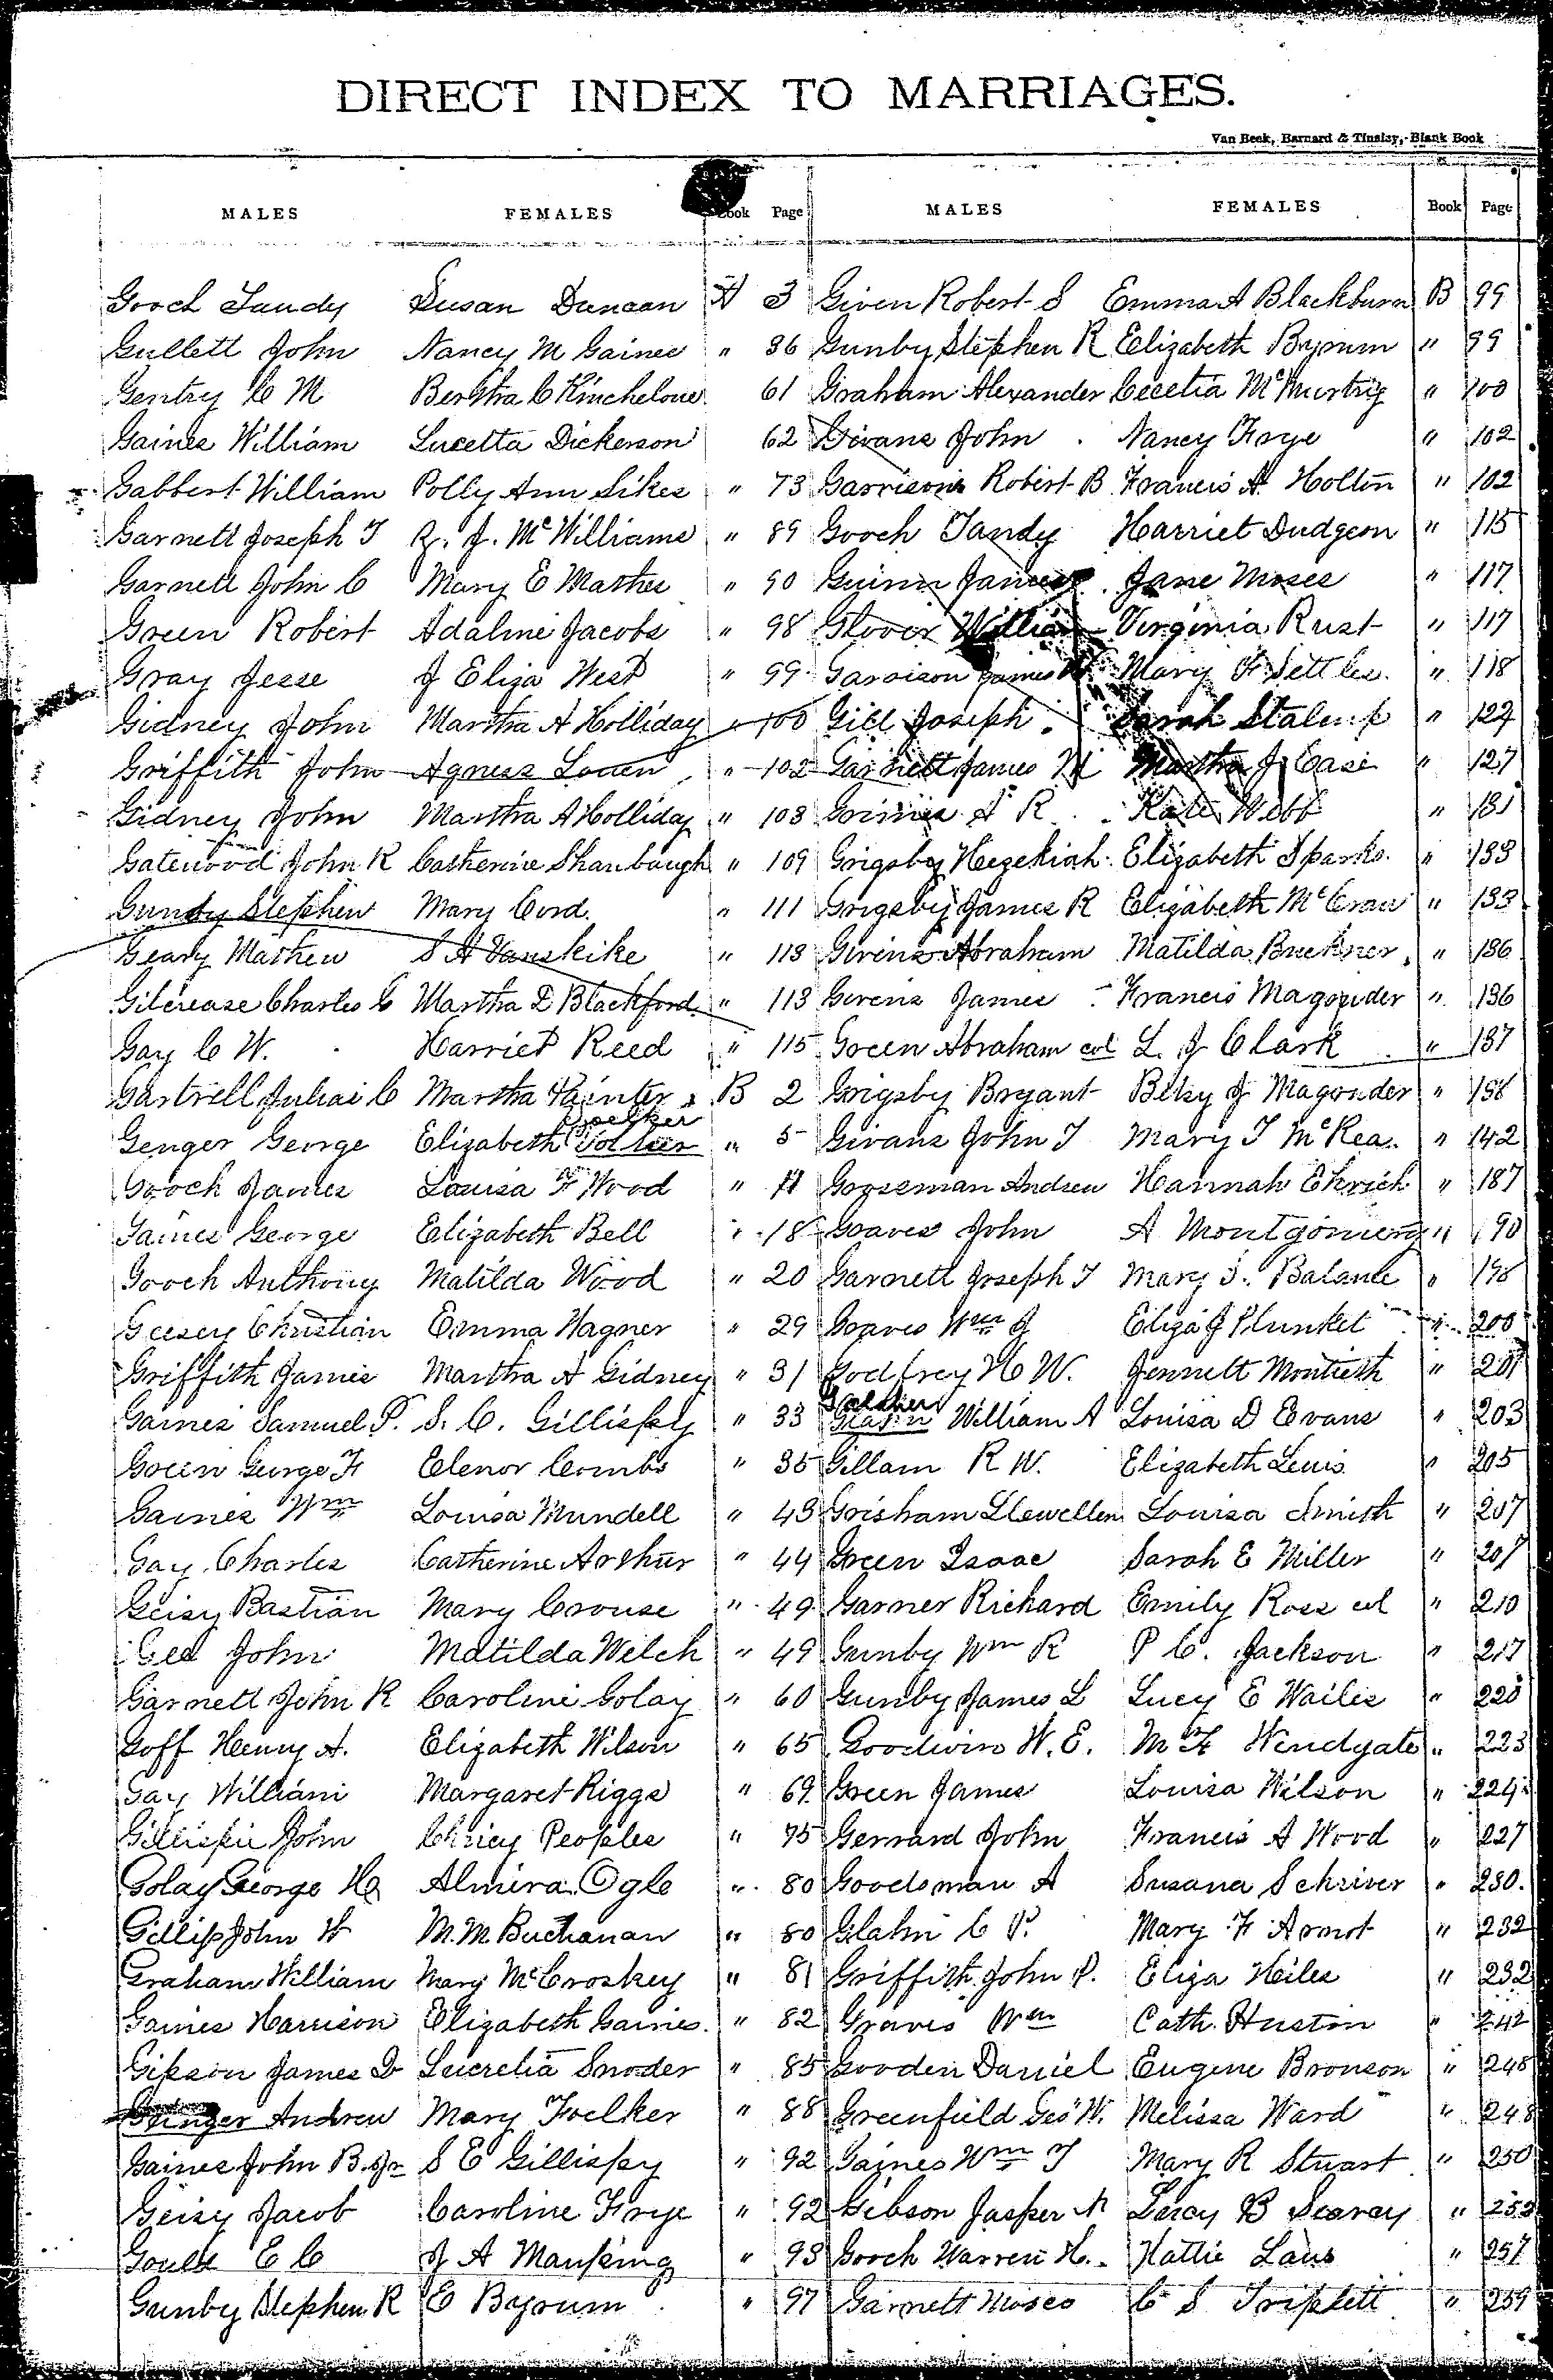 DIRECT INDEX TO MARRIAGES.
Van Beek, Barnard & Tinsley, Blank Book
MALES FEMALES Book Page MALES FEMALES Book Page
Gooch Tandy Susan Duncan A 3 Given Robert S Emma A Blackburn B 99
Gullett John Nancy M Gaines " 36 Gunby Stephen R Elizabeth Byrum " 99
Gentry C M Bertha C Kinchelowe 61 Graham Alexander Cecelia McMurtrig " 100
Gaines William Lucetta Dickerson 62 Givans John Nancy Frye " 102
Gabbert William Polly Ann Sikes " 73 Garrison Robert B Francis A Holton " 102
Garnett Joseph T Z. J. McWilliams " 89 Gooch Tandy Harriet Dudgeon " 115
Garnett John C Mary E Mathes " 90 Guinn James Jane Moses " 117
Green Robert Adaline Jacobs " 98 Glover William Virginia Rust " 117
Gray Jesse J Eliza West " 99 Garrison James Mary F Settles " 118
Gidney John Martha A Holliday " 100 Gill Joseph Sarah Stalcup " 127
Griffith John Agness Louen " 102 Garnett James M Martha J Case " 127
Gidney John Martha A Holliday " 103 Grimes A R Kate Webb " 131
Gatewood John R Catherine Shanbaugh " 109 Grigsby Hezekiah Elizabeth Sparks " 133
Gundy Stephen Mary Cord " 111 Grigsby James R Elizabeth McCraw " 133
Geary Mathew S A Vanskike " 113 Givens Abraham Matilda Buckner " 136
Gilcrease Charles C Martha D Blackford " 113 Givens James Francis Magouder " 136
Gay C W. Harriet Reed " 115 Green Abraham col L. J Clark " 137
Gartrell Juliai C Martha Painter B 2 Grigsby Bryant Betsy J Magouder " 138
Voelker
Genger George Elizabeth Volker " 5 Givans John T Mary T McKea " 142
Gooch James Louisa F Wood " 11 Gooseman Andrew Hannah Ehrich " 187
Gaines George Elizabeth Bell " 18 Graves John A Montgomery " 190
Gooch Anthony Matilda Wood " 20 Garnett Joseph T Mary J. Balance " 198
Geesey Christian Emma Wagner " 29 Graves Wm J Eliza J Plunket " 200
Griffith James Martha A Gidney " 31 Godfrey H W. Jennett Montieth " 201
Gaines Samuel P. S. C. Gillispy " 33 William A Louisa D Evans " 203
Green George F Elenor Combs " 35 Gillam R W. Elizabeth Lewis " 205
Gaines Wm Louisa Mundell " 43 Grisham Llewellen Louisa Smith " 207
Gay Charles Catherine Arthur " 44 Green Isaac Sarah E Miller " 207
Geisy Bastian Mary Crouse " 49 Garner Richard Emily Ross col " 210
Gee John Matilda Welch " 49 Gunby Wm R P C. Jackson " 217
Garnett John R Caroline Golay " 60 Gunby James L Lucy E Wailes " 220
Goff Henry A. Elizabeth Wilson " 65 Goodwin W. E. M F Wendgate " 223
Gay William Margaret Riggs " 69 Green James Louisa Wilson " 224
Gillispie John Chricy Peoples " 75 Gerrard John Francis A Wood " 227
Golay George H Almira Ogle " 80 Goodsman A Susana Schriver " 230.
Gillip John W M. M Buchanan " 80 Glahn C P. Mary F Arnot " 232
Graham William Mary McCroskey " 81 Griffith John P. Eliza Hiles " 232
Gaines Harrison Elizabeth Gaines " 82 Graves Wm Cath. Huston " 242
Gipson James D Lucretia Snoder " 85 Gooden Daniel Eugene Bronson " 248
Gunger Andrew Mary Foelker " 88 Greenfield Geo W. Melissa Ward " 248
Gaines John B. Jr S E Gillispy " 92 Gaines Wm T Mary R Stuart " 250
Geisy Jacob Caroline Frye " 92 Gibson Jasper N Leroy B Searcy " 253
Gould E C J A Manping " 93 Gooch Warren H. Hattie Laws " 257
Gunby Stephen R E Byrum " 97 Garnett Moses C S Triplett " 259